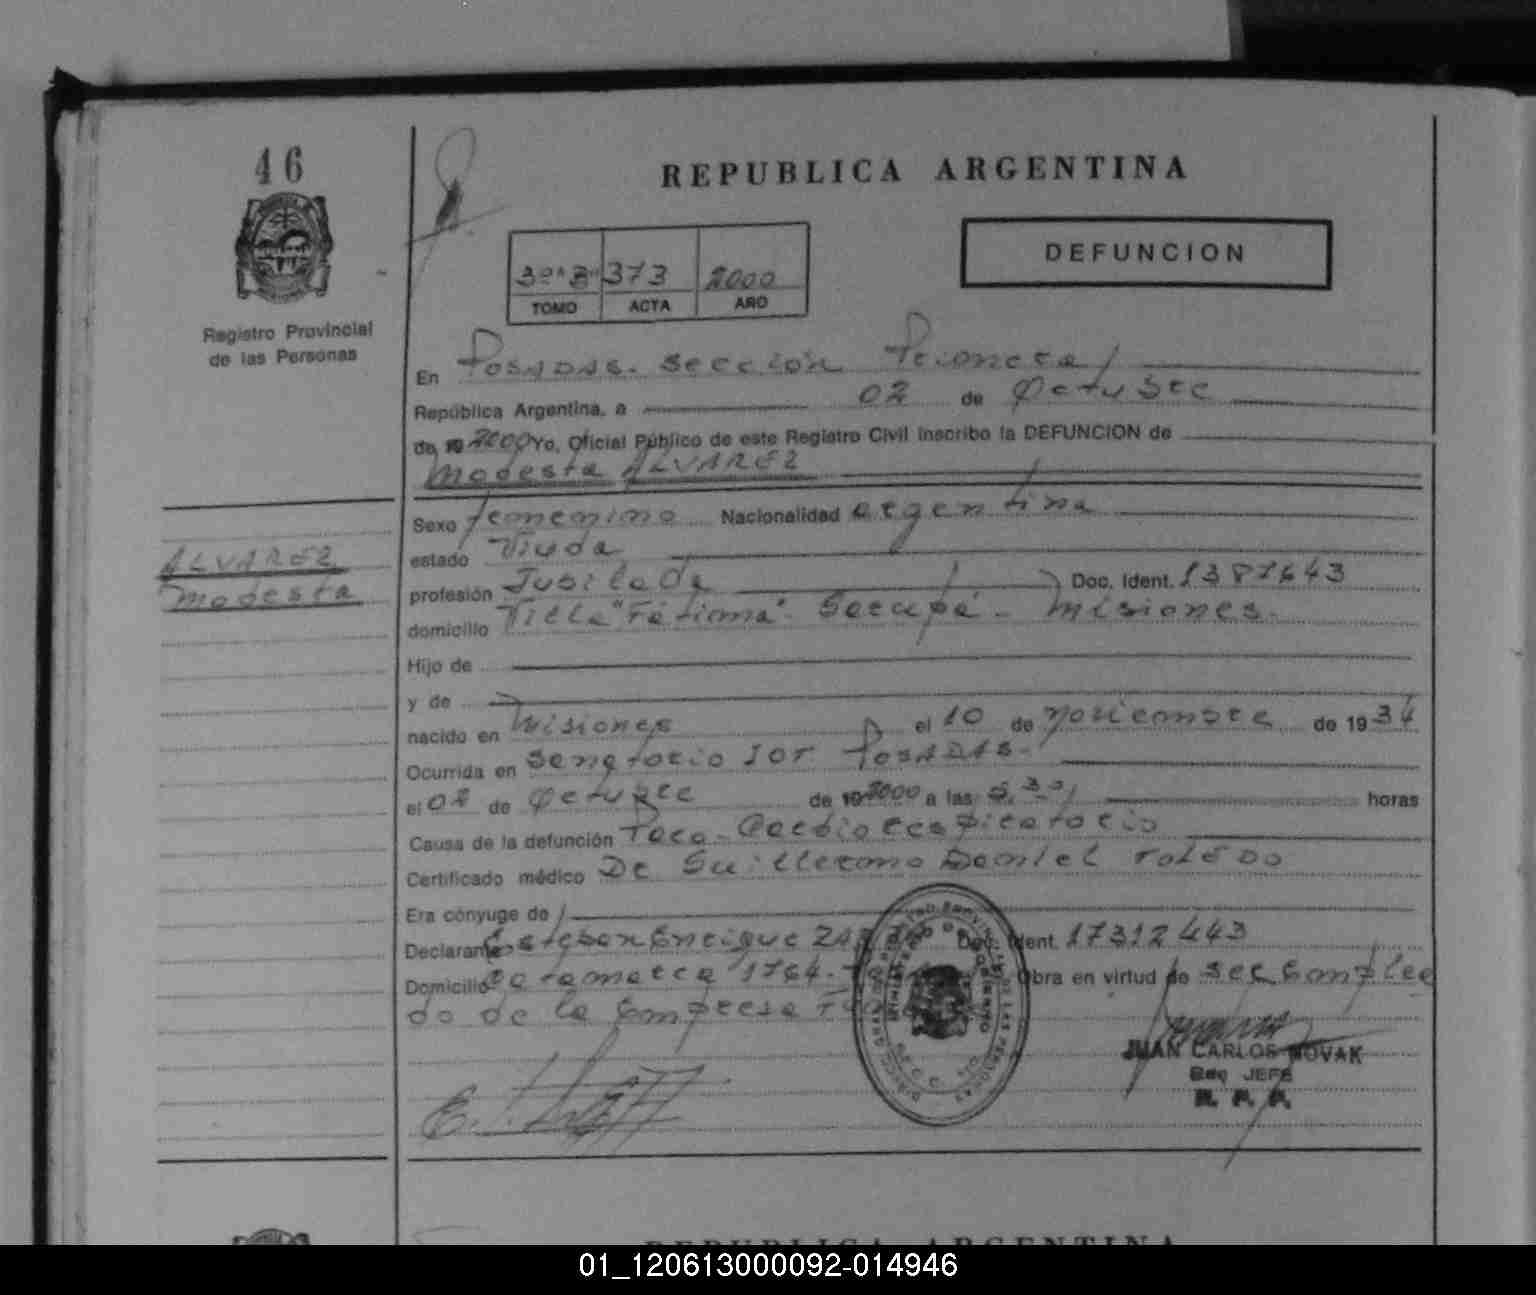 46
REPUBLICA ARGENTINA
DEFUNCION
373 2000
TOMO ACTA AÑO
Registro Provincial
de las Personas
En POSADAS. Sección Primera
República Argentina, a 02 de Octubre
de 19 2000 Yo, Oficial Público de este Registro Civil inscribo la DEFUNCION de
Modesta ALVAREZ
ALVAREZ
Modesta
Sexo femenino Nacionalidad argentina
estado Viuda
profesión Jubilada Doc. Ident. 1387643
domicilio Villa "Fátima" Garupá - Misiones.
Hijo de
y de
nacido en Misiones el 10 de noviembre de 1934
Ocurrida en Sanatorio IOT POSADAS.
el 02 de Octubre de 19 2000 a las horas
Causa de la defunción Paro-Cardiorespiratorio
Certificado médico Dr Guillermo Daniel TOLEDO
Era cónyuge de
Declarante Esteban Enrique Doc. Ident. 17312443
Domicilio Catamarca 1764. Obra en virtud de ser Emplea
do de la Empresa
JUAN CARLOS NOVAK
JEFE
R. P. P.
REPUBLICA ARGENTINA
01_120613000092-014946